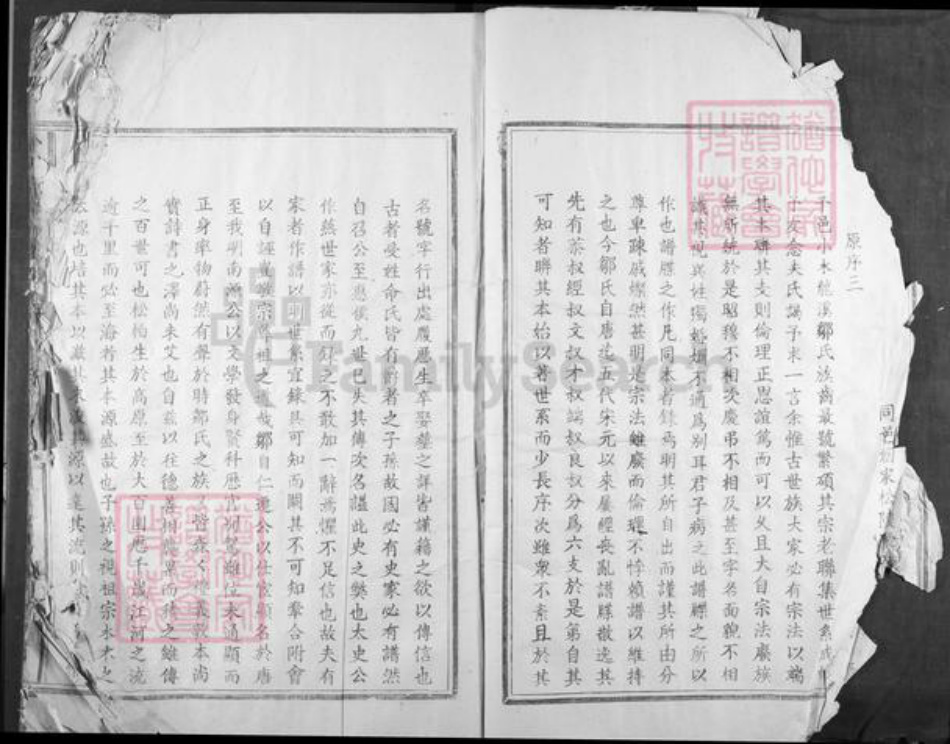 原序三
同邑
邑小木 溪鄒氏族齒最號繁碩其宗老聯集世系
念夫氏謁予求一言余惟古世族大家必有宗法以端
其本聯其支則倫理正恩誼篤而可以久且大自宗法廢族
無所統於是昭穆不相次慶弔不相及甚至字名面貌不相
與姓獨婚姻不通為別耳君子病之此譜牒之所以
作也譜牒之作凡同本者錄焉明其所自出而謹其所由分
尊卑踈戚燦然甚明是宗法雖廢而倫理不悖賴譜以維持
之也今鄒氏自唐迄五代宋元以來屢經喪亂譜牒散逸其
先有蔡叔經叔文叔才叔端叔良叔分為六支於是第自其
可知者聯其本始以著世系而少長序次雖眾不紊且於其
名號字行出處履歷生卒娶塟之詳皆謹籍之欲以傳信也
古者受姓命氏皆有爵者之子孫故國必有史家必有譜然
自召公至惠侯九世已失其傳次名諡此史之獘也太史公
作燕世家亦從而錄之不敢加一辭焉懼不足信也故夫有
家者作譜以明世系宜錄其可知而闕其不可知牽合附會
以自誣 之 哉鄒自仁通公以仕宦顯名於唐
至我明南 公以文學發身賢科歷官 位未通顯而
正身率物蔚然有聲於時鄒氏之族 禮義敦本尚
實詩書之澤尚未艾也自茲以往德善相 而積之雖傳
之百世可也松柏生於高原至於大百圍 千歲江河之流
逾千里而必至海者其本源盛故也子孫之視祖宗本木之
源也培其本以 其末 其源以達其流則